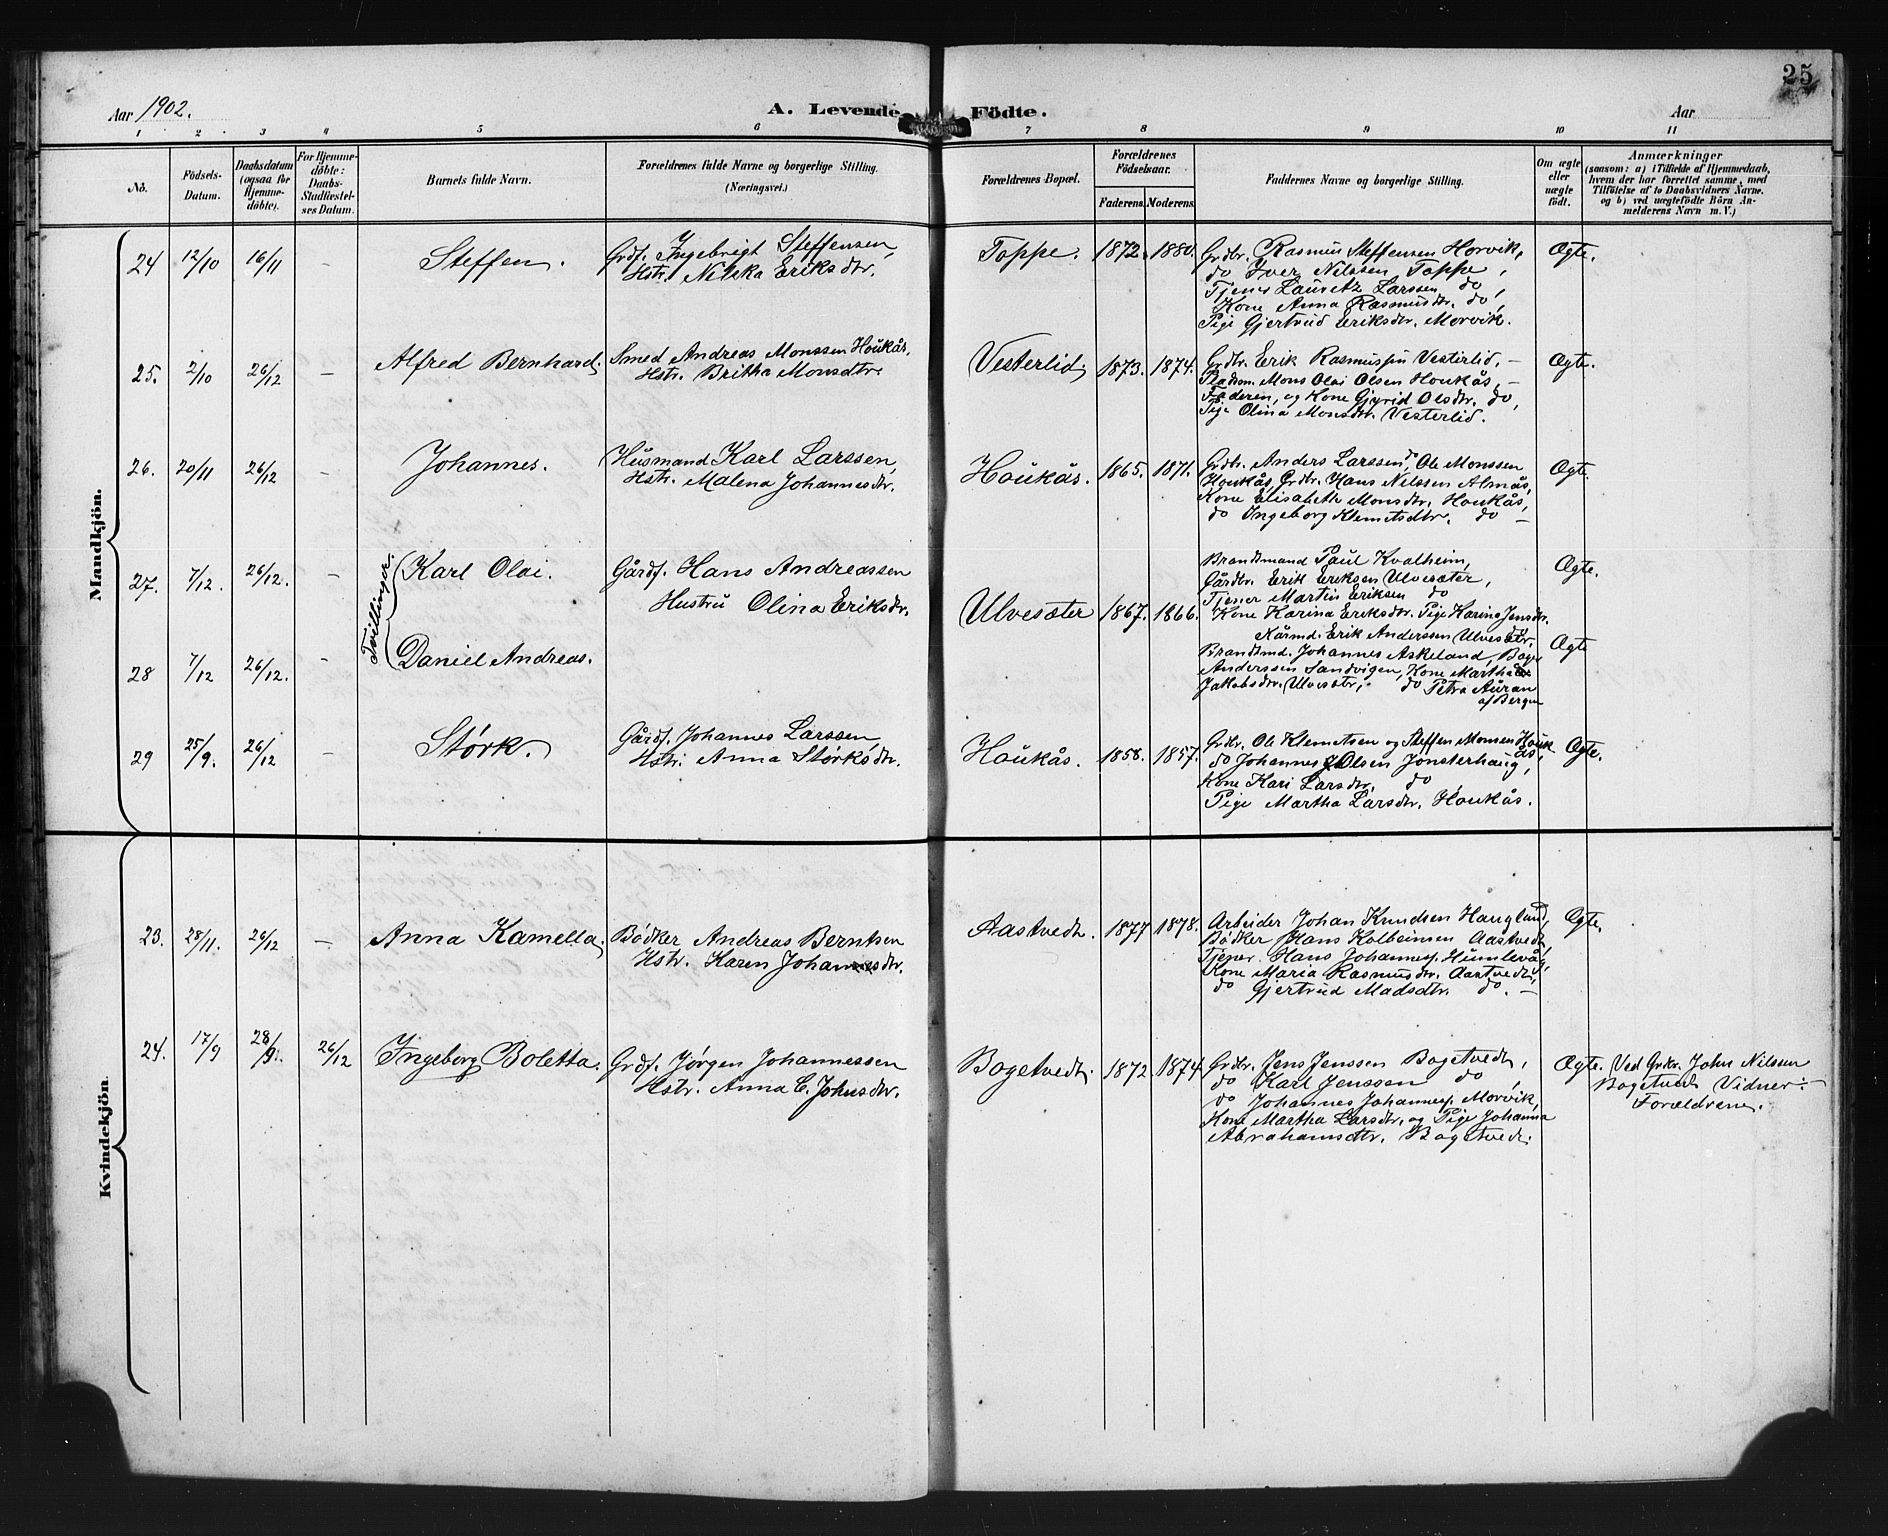 25
Aar 1902.
A. Levende Födte.
Aar
1 2 3 4 5 6 7 8 9 10 11
No.
Födsels-Datum.
Daabsdatum (ogsaa for Hjemme-döbte).
For Hjemme-döbte: Daabs-Stadfæstel-ses Datum.
Barnets fulde Navn.
Forældrenes fulde Navne og borgerlige Stilling.
(Næringsvei.)
Forældrenes Bopæl.
Forældrenes Födselsaar.
Faderens. Moderens.
Faddernes Navne og borgerlige Stilling.
Om ægte eller uægte födt.
Anmærkninger
(saasom: a) i Tilfælde af Hjemmedaab,
hvem der har forrettet samme, med
Tilföielse af to Daabsvidners Navne.
og b) ved uægtefödte Börn An-
melderens Navn m. V.)
Mandkjön.
24 12/10 16/11 - Steffen. Grdf. Ingebrigt Steffensen,
Hstr. Eriksdtr.
Toppe. 1872. 1880.
Grdbr. Rasmus Steffensen Horvik,
do Iver Nilssen Toppe,
Tjener Lauritz Larssen do,
Kone Anna Rasmusdtr. do,
Pige Gjertrud Eriksdtr. Morvik.
Ægte.
25. 2/10 26/12 - Alfred Bernhard. Smed Andreas Monssen Houkås,
Hstr. Britha Monsdtr
Vesterlid. 1873. 1874.
Grdbr. Erik Rasmussen Vesterlid, -
Pladsm. Mons Olai Olsen Houkås, -
Faderen, og Kone Gjyrid Olsdtr. do,
Pige Olina Monsdtr. Vesterlid.
Ægte.
26. 20/11 26/12 - Johannes. Husmand Karl Larssen,
Hstr. Malena Johannesdtr.
Houkås. 1865. 1871.
Grdbr. Anders Larssen, Ole Monssen
Houkås, Grdbr. Hans Nilssen Almås,
Kone Elisabeth Monsdtr. Houkås,
do Ingeborg Klemetsdtr. do -
Ægte.
Tvillinger.
27. 7/12 26/12. - Karl Olai. Gårdf. Hans Andreassen
Hustru Olina Eriksdtr.
Ulvesæter 1867. 1866.
Brandtmand Paul Kvalheim,
Gårdbr. Erik Eriksen Ulvesæter,
Tjener Martin Eriksen do
Kone Karina Eriksdtr. Pige Karina Jensdtr.
Ægte.
28 7/12 26/12. - Daniel Andreas.
Kårmd. Erik Anderssen Ulvesætr,
Brandtmd. Johannes Askeland, Bager
Anderssen Sandvigen, Kone Martha
Jakobsdtr. Ulvesætr, do Petra Auran
af Bergen
Ægte
29 25/9. 26/12 - Størk. Gårdf. Johannes Larssen,
Hstr. Anna Størksdtr.
Houkås. 1858. 1857.
Grdbr. Ole Klemetsen og Steffen Monsen Houk
ås,
do Johannes Olsen Jonsterhaug,
Kone Kari Larsdtr. do
Pige Martha Larsdtr. Houkås.
Ægte.
Kvindekjön.
23. 28/11. 26/12 - Anna Kamella. Bødker Andreas Berntsen
Hstr. Karen Johannesdtr.
Aastvedt. 1877 1878.
Arbeider Johan Knudsen Haugland,
Bødker Hans Kolbeinsen Aastvedt,
Tjener Hans Johanness. Humlevåg,
Kone Maria Rasmusdtr. Aastvedt,
do Gjertrud Madsdtr. do. -
Ægte.
24. 17/9 28/9. 26/12 Ingeborg Boletta. Grdf. Jørgen Johannessen
Hstr. Anna C. Johnsdtr.
Bogetvedt. 1872. 1874.
Grdbr. Jens Jenssen Bogetvedt,
do Karl Jenssen do,
do Johannes Johanness. Morvik,
Kone Martha Larsdtr. og Pige Johanna
Abrahamsdtr. Bogetvedt.
Ægte. Ved Grdbr. John Nilssen
Bogetvedt Vidner:
Forældrene.